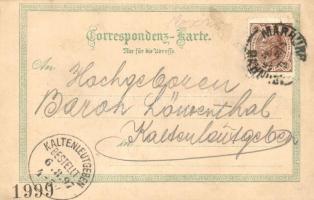 Correspondenz-Karte.
Nur für die Adresse.
MARBURG
An Hochgeboren
Baron Löwenthal
in Kaltenleutgeben
KALTENLEUTGEBEN
BESTELLT
6.8.97
1999